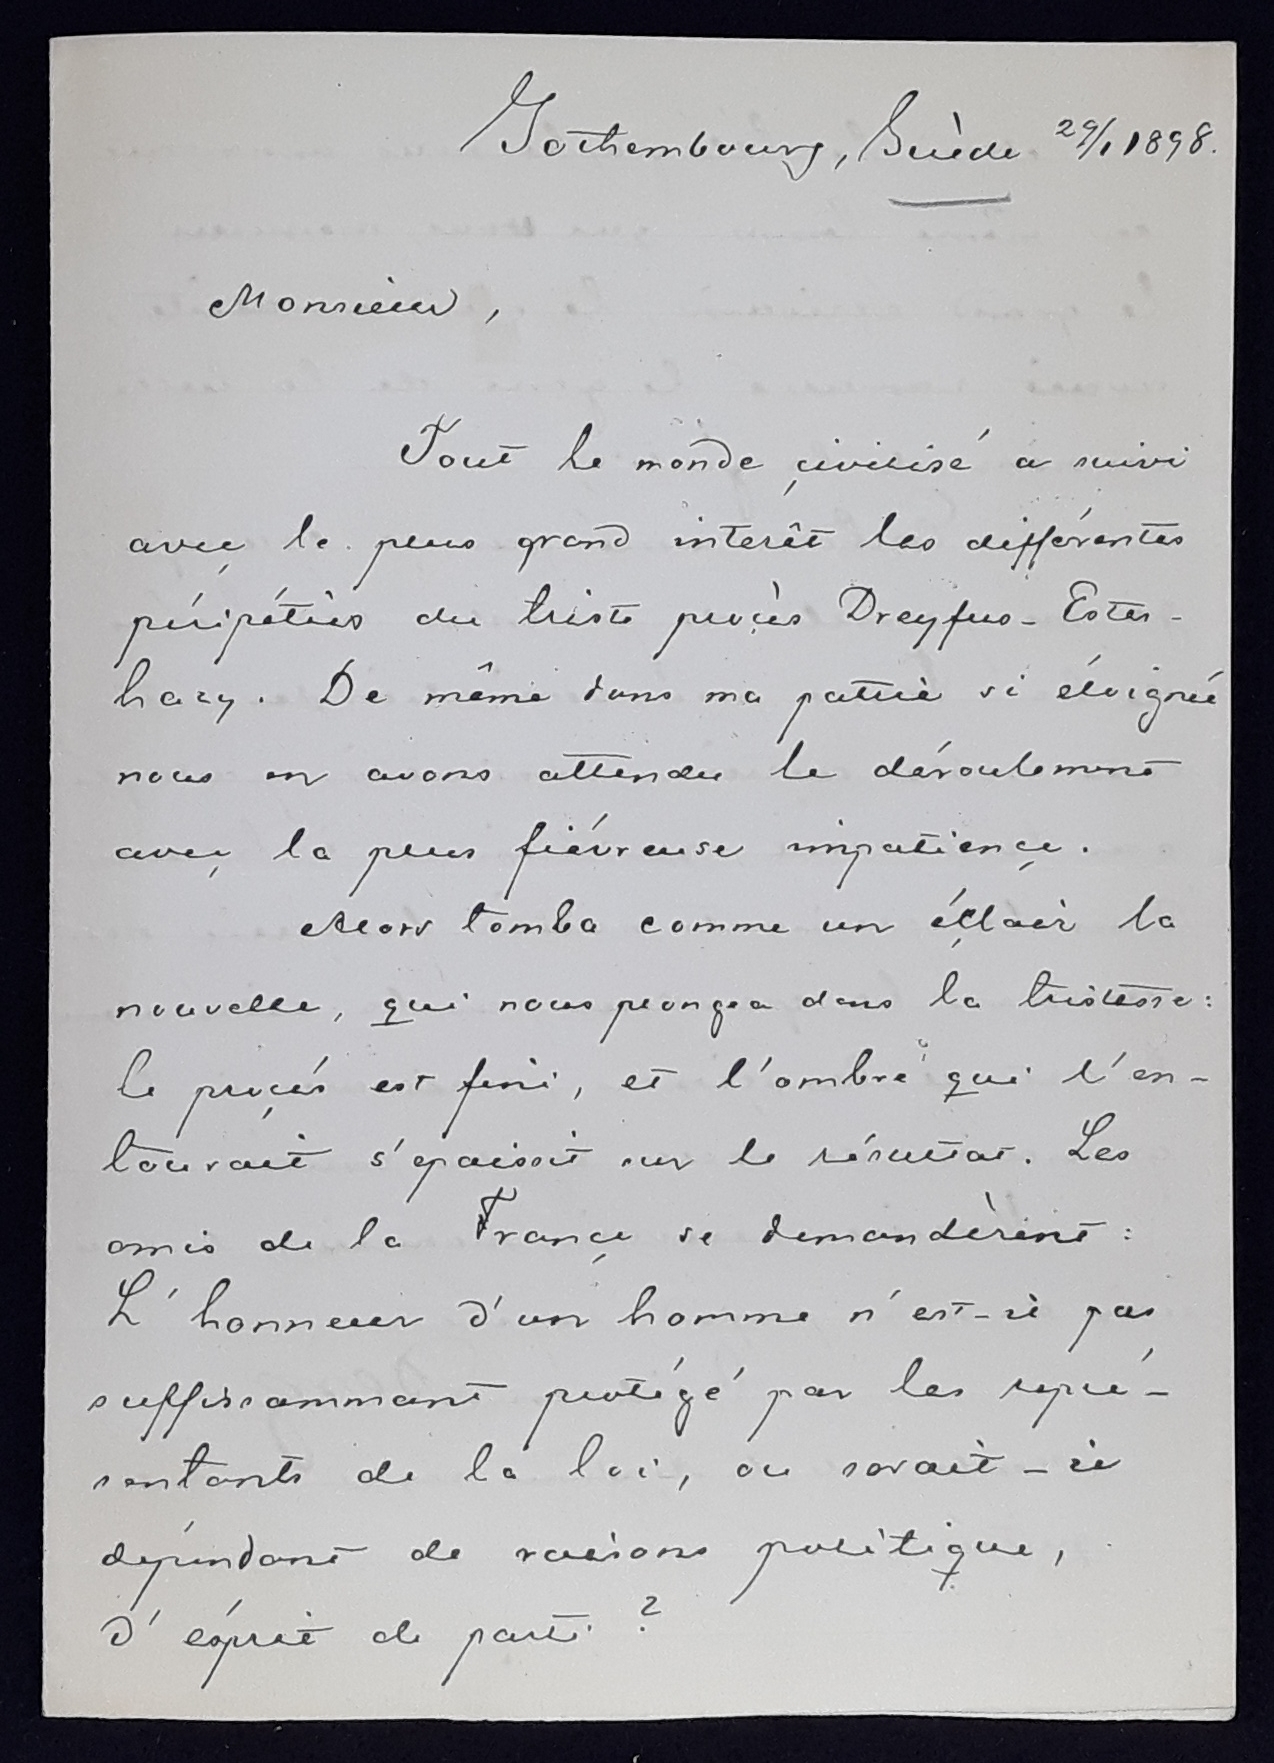 Gothembourg, Suède 29/1 1898.
Monsieur,
Tout le monde çivilisé a suivi
aveç le plus grand interêt les différentes
péripéties du triste proçès Dreyfus-Ester-
hazy. De même dans ma patrie si éloignée
nous en avons attendu le déroulement
aveç la plus fiévreuse impatiençe.
Alors tomba comme un éçlair la
nouvelle, qui nous plongea dans la tristesse:
le proçés est fini, et l'ombre qui l'en-
tourait s'epaissit sur le résultat. Les
amis de la Françe se demandèrent:
L'honneur d'un homme n'est-il pas
suffisammant protégé par les repré-
sentants de la loi, ou serait-il
dépendant de raisons politique,
d'ésprit de parti?